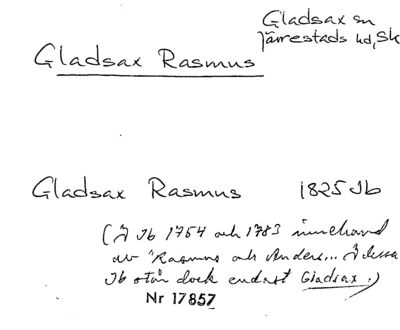 Gladsax sn
Järrestads hd, Sk
Gladsax Rasmus
Gladsax Rasmus 1825 Jb
(I Jb 1754 och 1783 innehavd
av "Rasmus och Anders... I dessa
Jb står dock endast Gladsax.)
Nr 17857